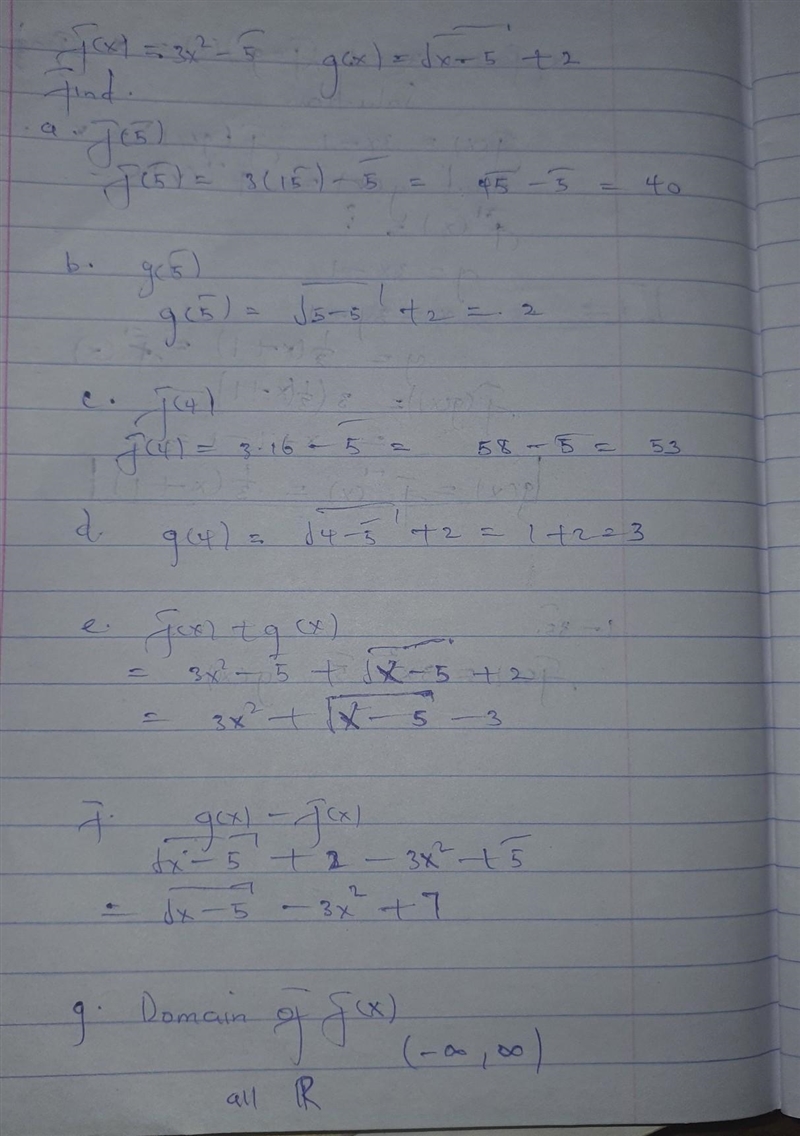 f(x) = 3x² - 5 g(x) = √x-5 + 2
find.
a. f(5)
f(5) = 3(15) - 5 = 45 - 5 = 40
b. g(5)
g(5) = √5-5 + 2 = 2
c. f(4)
f(4) = 3.16 - 5 = 58 - 5 = 53
d. g(4) = √4-5 + 2 = 1 + 2 = 3
e. f(x) + g(x)
= 3x² - 5 + √x-5 + 2
= 3x² + √x-5 - 3
f. g(x) - f(x)
√x-5 + 2 - 3x² + 5
= √x-5 - 3x² + 7
g. Domain of f(x)
(-∞, ∞)
all ℝ